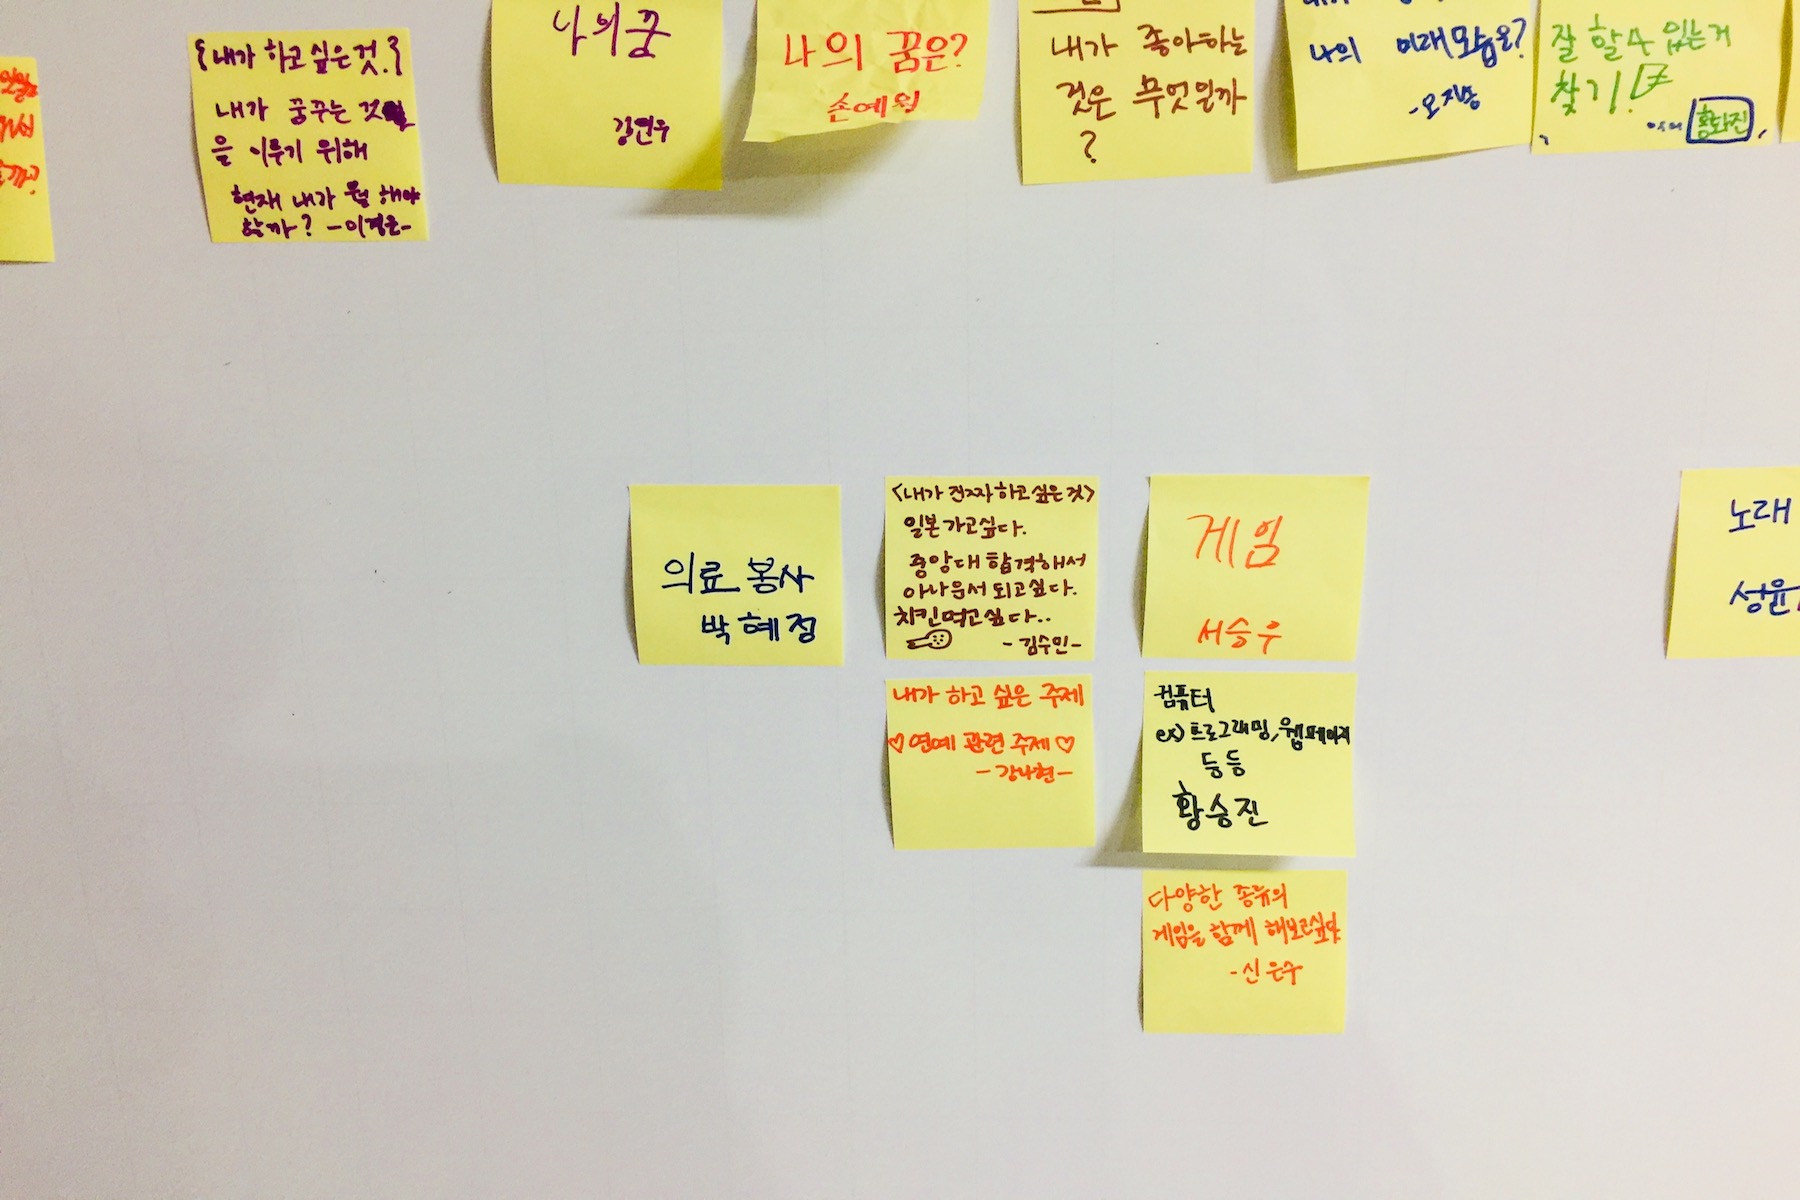 {내가 하고 싶은것.}
내가 꿈꾸는 것
을 이루기 위해
현재 내가 뭘 해야
할까?
나의꿈
김연우
나의 꿈은?
손예원
내가 좋아하는
것은 무엇일까
?
나의 미래모습은?
잘 할수 있는거
찾기!
의료봉사
박혜정
<내가 진짜 하고싶은것>
일본가고싶다.
중앙대 합격해서
아나운서 되고싶다.
치킨먹고싶다..
-김수민-
내가 하고 싶은 주제
♡연예 관련 주제♡
-강나현-
게임
서승우
컴퓨터
ex)프로그래밍,웹페이지
등등
황승진
다양한 종류의
게임을 함께 해보고싶다
-신은수
노래
성윤